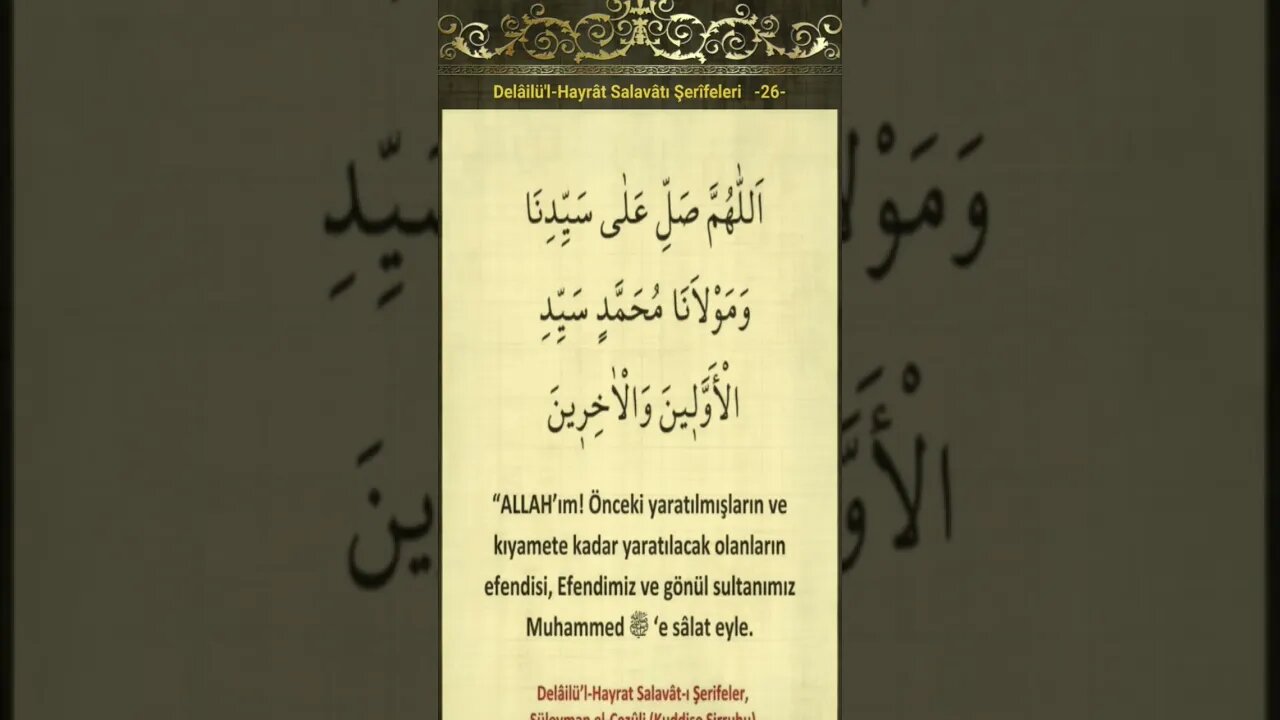 Delâilü'l-Hayrât Salavâtı Şerîfeleri -26-
اَللّٰهُمَّ صَلِّ عَلٰى سَيِّدِنَا
وَمَوْلَانَا مُحَمَّدٍ سَيِّدِ
الْأَوَّلٖينَ وَالْاٰخِرٖينَ
“ALLAH’ım! Önceki yaratılmışların ve
kıyamete kadar yaratılacak olanların
efendisi, Efendimiz ve gönül sultanımız
Muhammed ﷺ ‘e sâlat eyle.
Delâilü’l-Hayrat Salavât-ı Şerifeler,
Süleyman el-Cezûli (Kuddise Sirruhu)